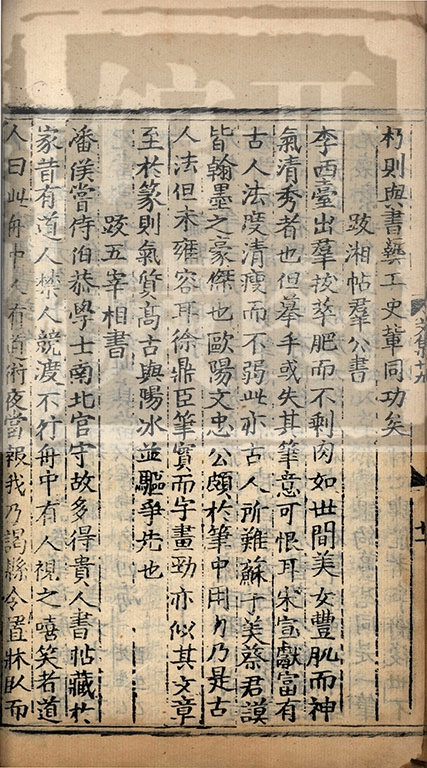 朽則與書藝工史輩同功矣
跋湘帖羣公書
李西臺出羣拔萃肥而不剩肉如世間美女豐肌而神
氣清秀者也但摹手或失其筆意可恨耳宋宣獻富有
古人法度清瘦而不弱此亦古人所難蘇子美蔡君謨
皆翰墨之豪傑也歐陽文忠公頗於筆中用力乃是古
人法但未雍容耳徐鼎臣筆實而字畫勁亦似其文章
至於篆則氣質高古與陽冰並驅爭先也
跋五宰相書
潘侯嘗侍伯恭學士南北官守故多得貴人書帖藏於
家昔有道人禁人競渡不行舟中有人視之嘻笑者道
人曰此舟中人有道術夜當報我乃謁縣令置牀臥而